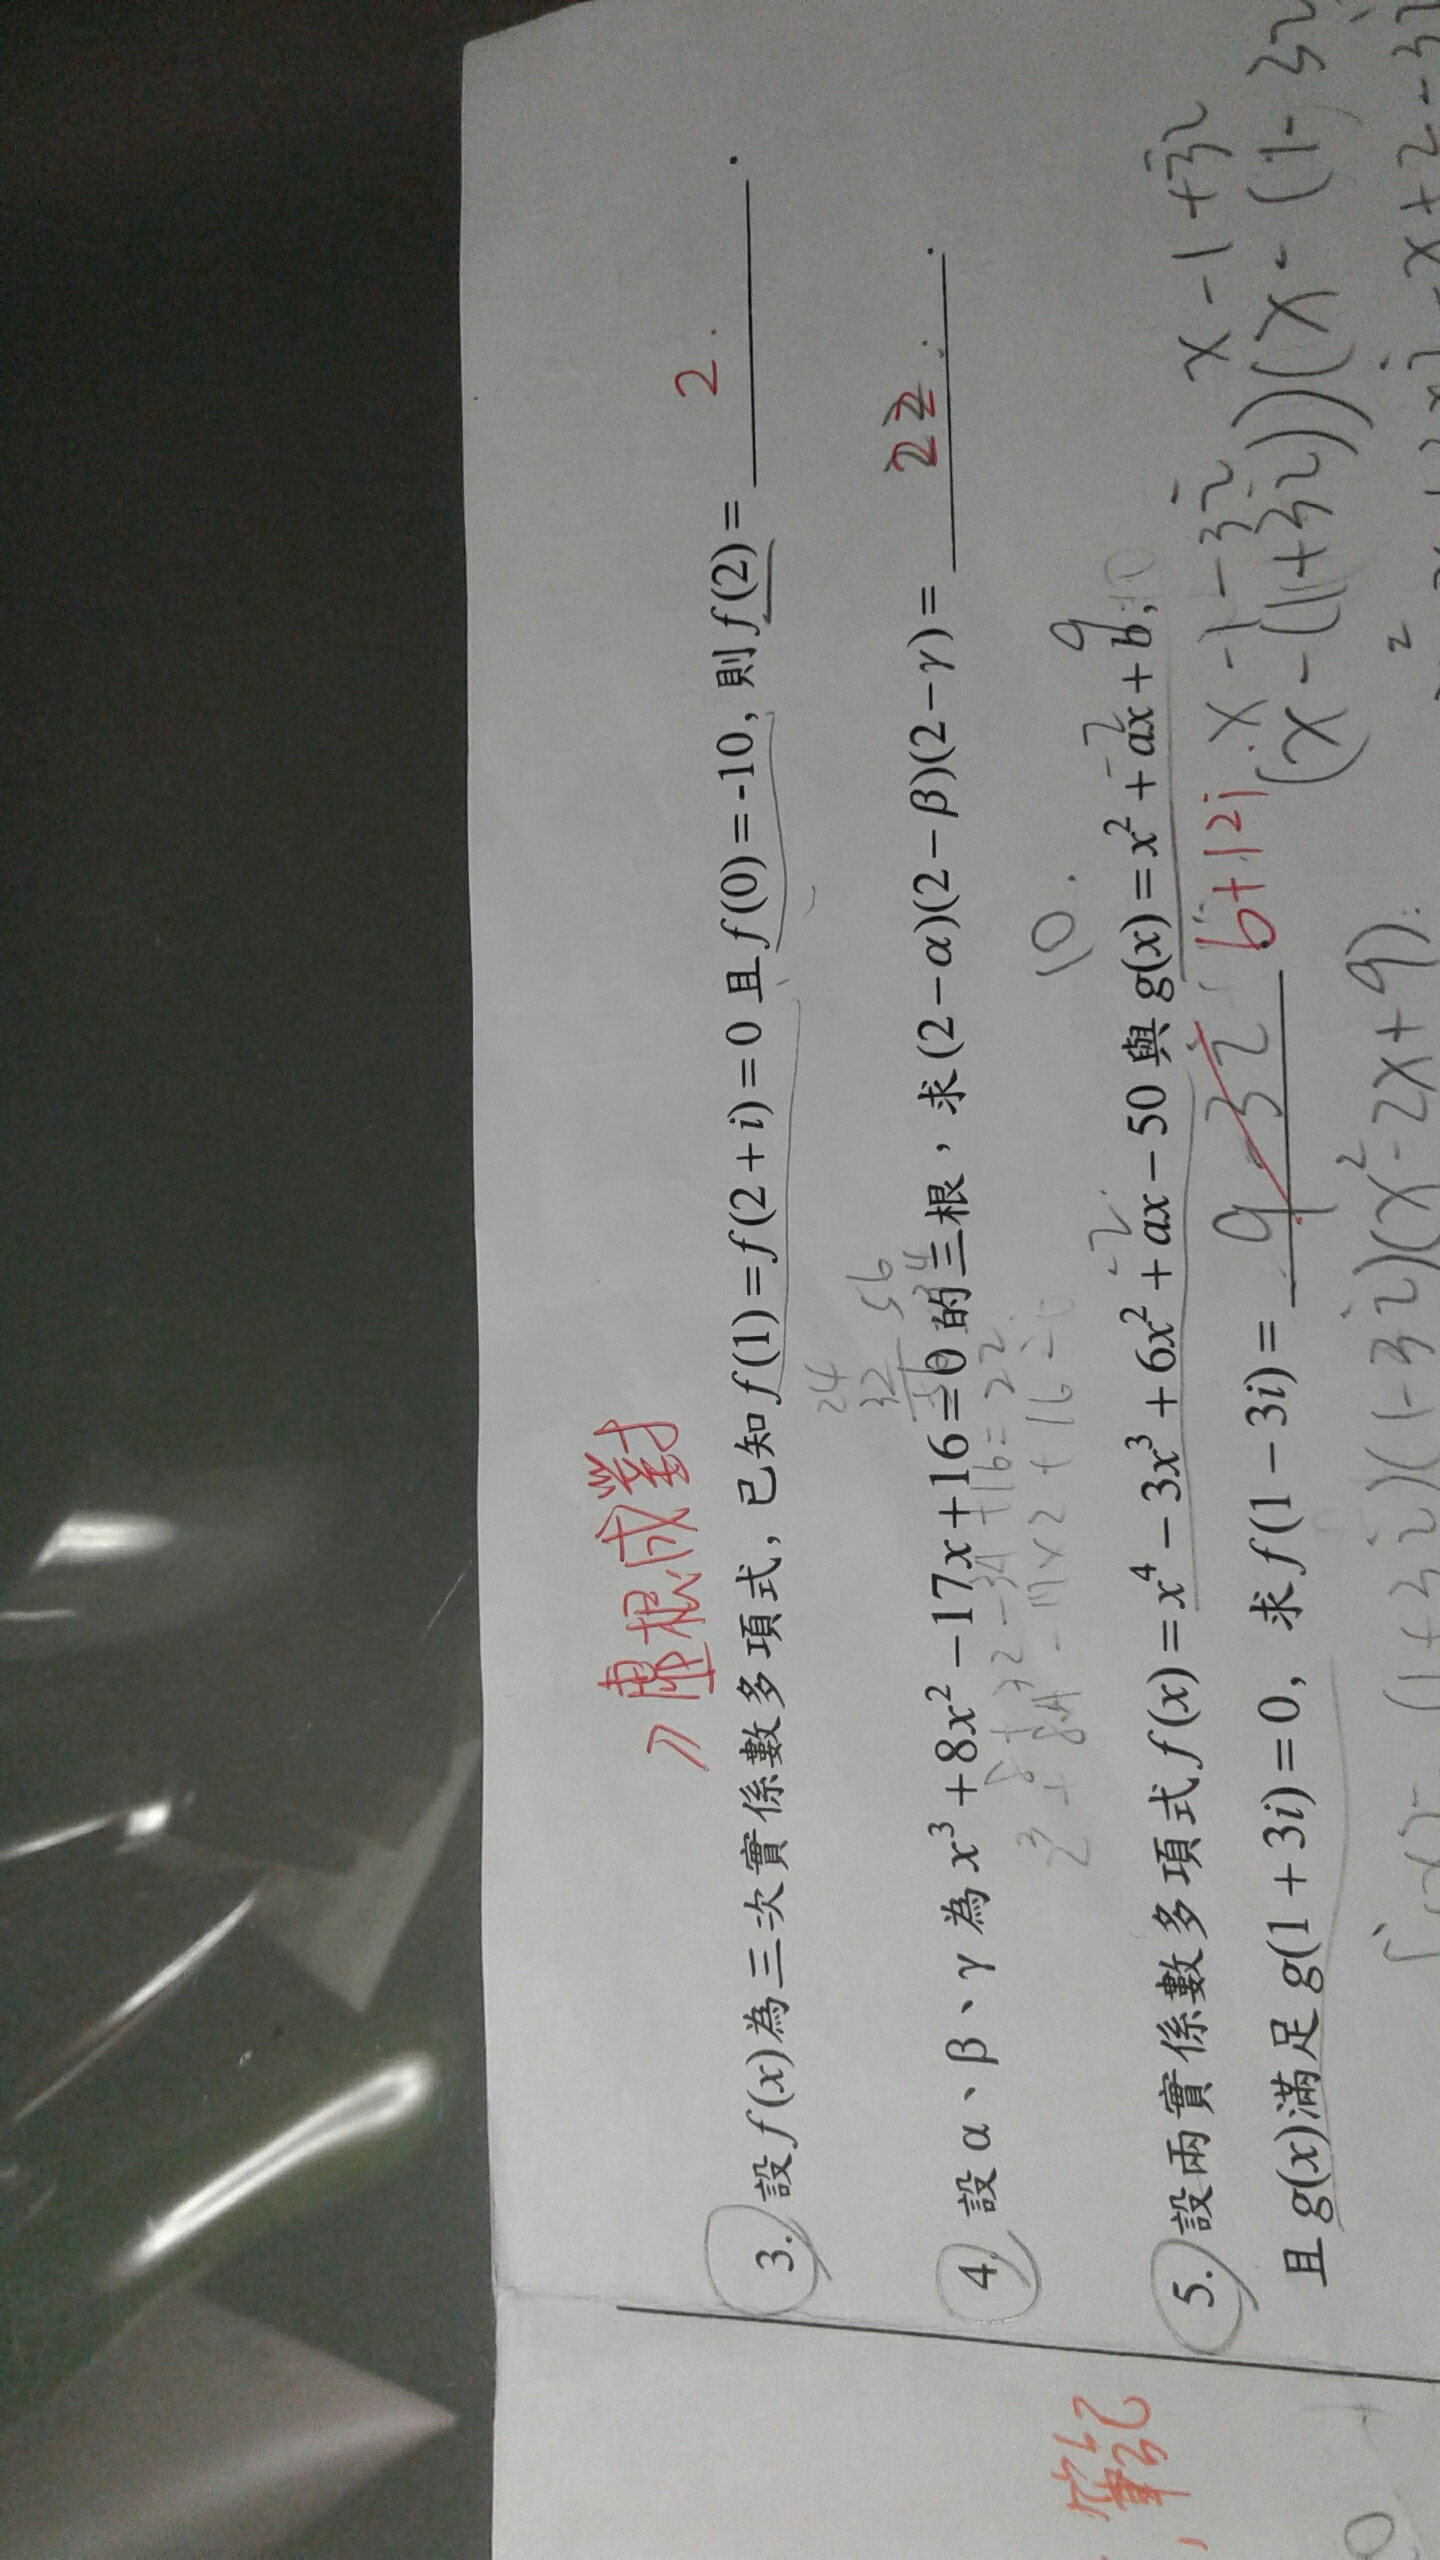 虛根成對
3. 設f(x)為三次實係數多項式，已知f(1)=f(2+i)=0且f(0)=-10，則f(2)= 2.
24
32
56
4. 設α、β、γ為x³+8x²-17x+16=0的三根，求(2-α)(2-β)(2-γ)= 22.
8+32-34+16=22
10.
5. 設兩實係數多項式f(x)=x⁴-3x³+6x²+ax-50與g(x)=x²+ax+b,
-2
-2
9
10
且g(x)滿足g(1+3i)=0，求f(1-3i)= 9-3i 6+12i
x-1-3i x-1+3i
(x-(1+3i))(x-(1-3i
(-3i)(x²-2x+9)
筆記